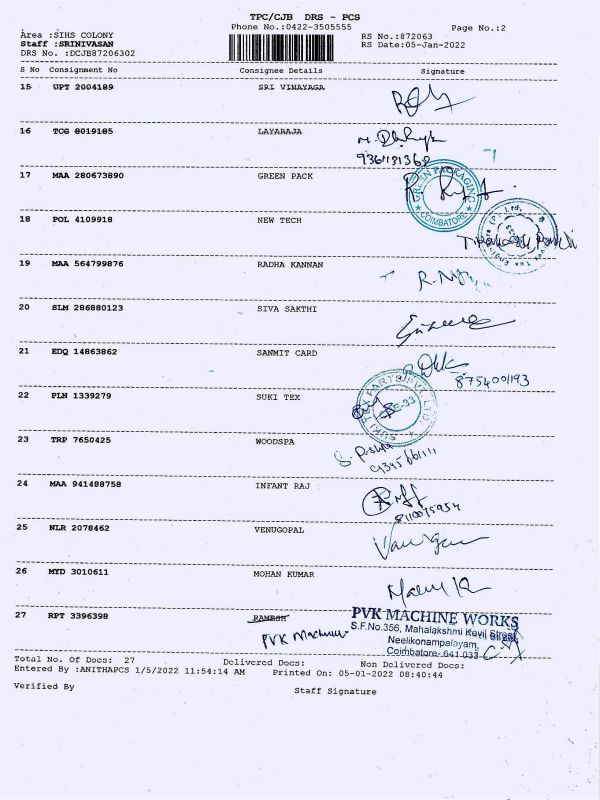 TPC/CJB DRS - PCS
Phone No.:0422-3505555
Page No.:2
Area :SIHS COLONY
RS No.:872063
Staff :SRINIVASAN
RS Date:05-Jan-2022
DRS No. :DCJB87206302
S No Consignment No Consignee Details Signature
15 UPT 2004189 SRI VINAYAGA
16 TCG 8019185 LAYARAJA
9361131368
17 MAA 280673890 GREEN PACK
GREEN PACKAGING
COIMBATORE
18 POL 4109918 NEW TECH
19 MAA 564799876 RADHA KANNAN
20 SLM 286880123 SIVA SAKTHI
21 EDQ 14863862 SANMIT CARD
8754001193
22 PLN 1339279 SUKI TEX
SUKI TEX PARTS PVT. LTD.
23 TRP 7650425 WOODSPA
24 MAA 941488758 INFANT RAJ
25 NLR 2078462 VENUGOPAL
26 MYD 3010611 MOHAN KUMAR
27 RPT 3396398 RAMESH
PVK
PVK MACHINE WORKS
S.F.No.356, Mahalakshmi Kovil Street
Neelikonampalayam,
Coimbatore- 641 033
Total No. Of Docs: 27 Delivered Docs: Non Delivered Docs:
Entered By :ANITHAPCS 1/5/2022 11:54:14 AM Printed On: 05-01-2022 08:40:44
Verified By Staff Signature